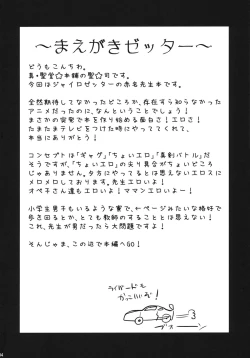 ～まえがきゼッター～
どうもこんちわ。
真・聖堂☆本舗の聖☆司です。
今回はジャイロゼッターの赤名先生本です。
全然期待してなかったどころか、存在すら知らなかった
アニメだったのに、なんということでしょう!
まさかの突発で本を作り始める面白さ!エロさ!
たまたまテレビをつけた時にやってくれてて、
本当にありがとう!
コンセプトは「ギャグ」「ちょいエロ」「真剣バトル」だ
そうですが、「ちょいエロ」の尖り具合がちょいどころ
じゃありません。夕方にやってるとは思えないエロスに
メロメロしております。先生エロいよ!
オペ子さん達もエロいよ!ママンエロいよー!
小学生男子もいるような寮で、←ページみたいな格好で
歩き回るとか、とても教師のすることとは思えない!
これ、先生が男だったら大問題ですよ!
そんじゃま、この辺で本編へGO!
ライバードも
かっこいいぞ!
ブオーン